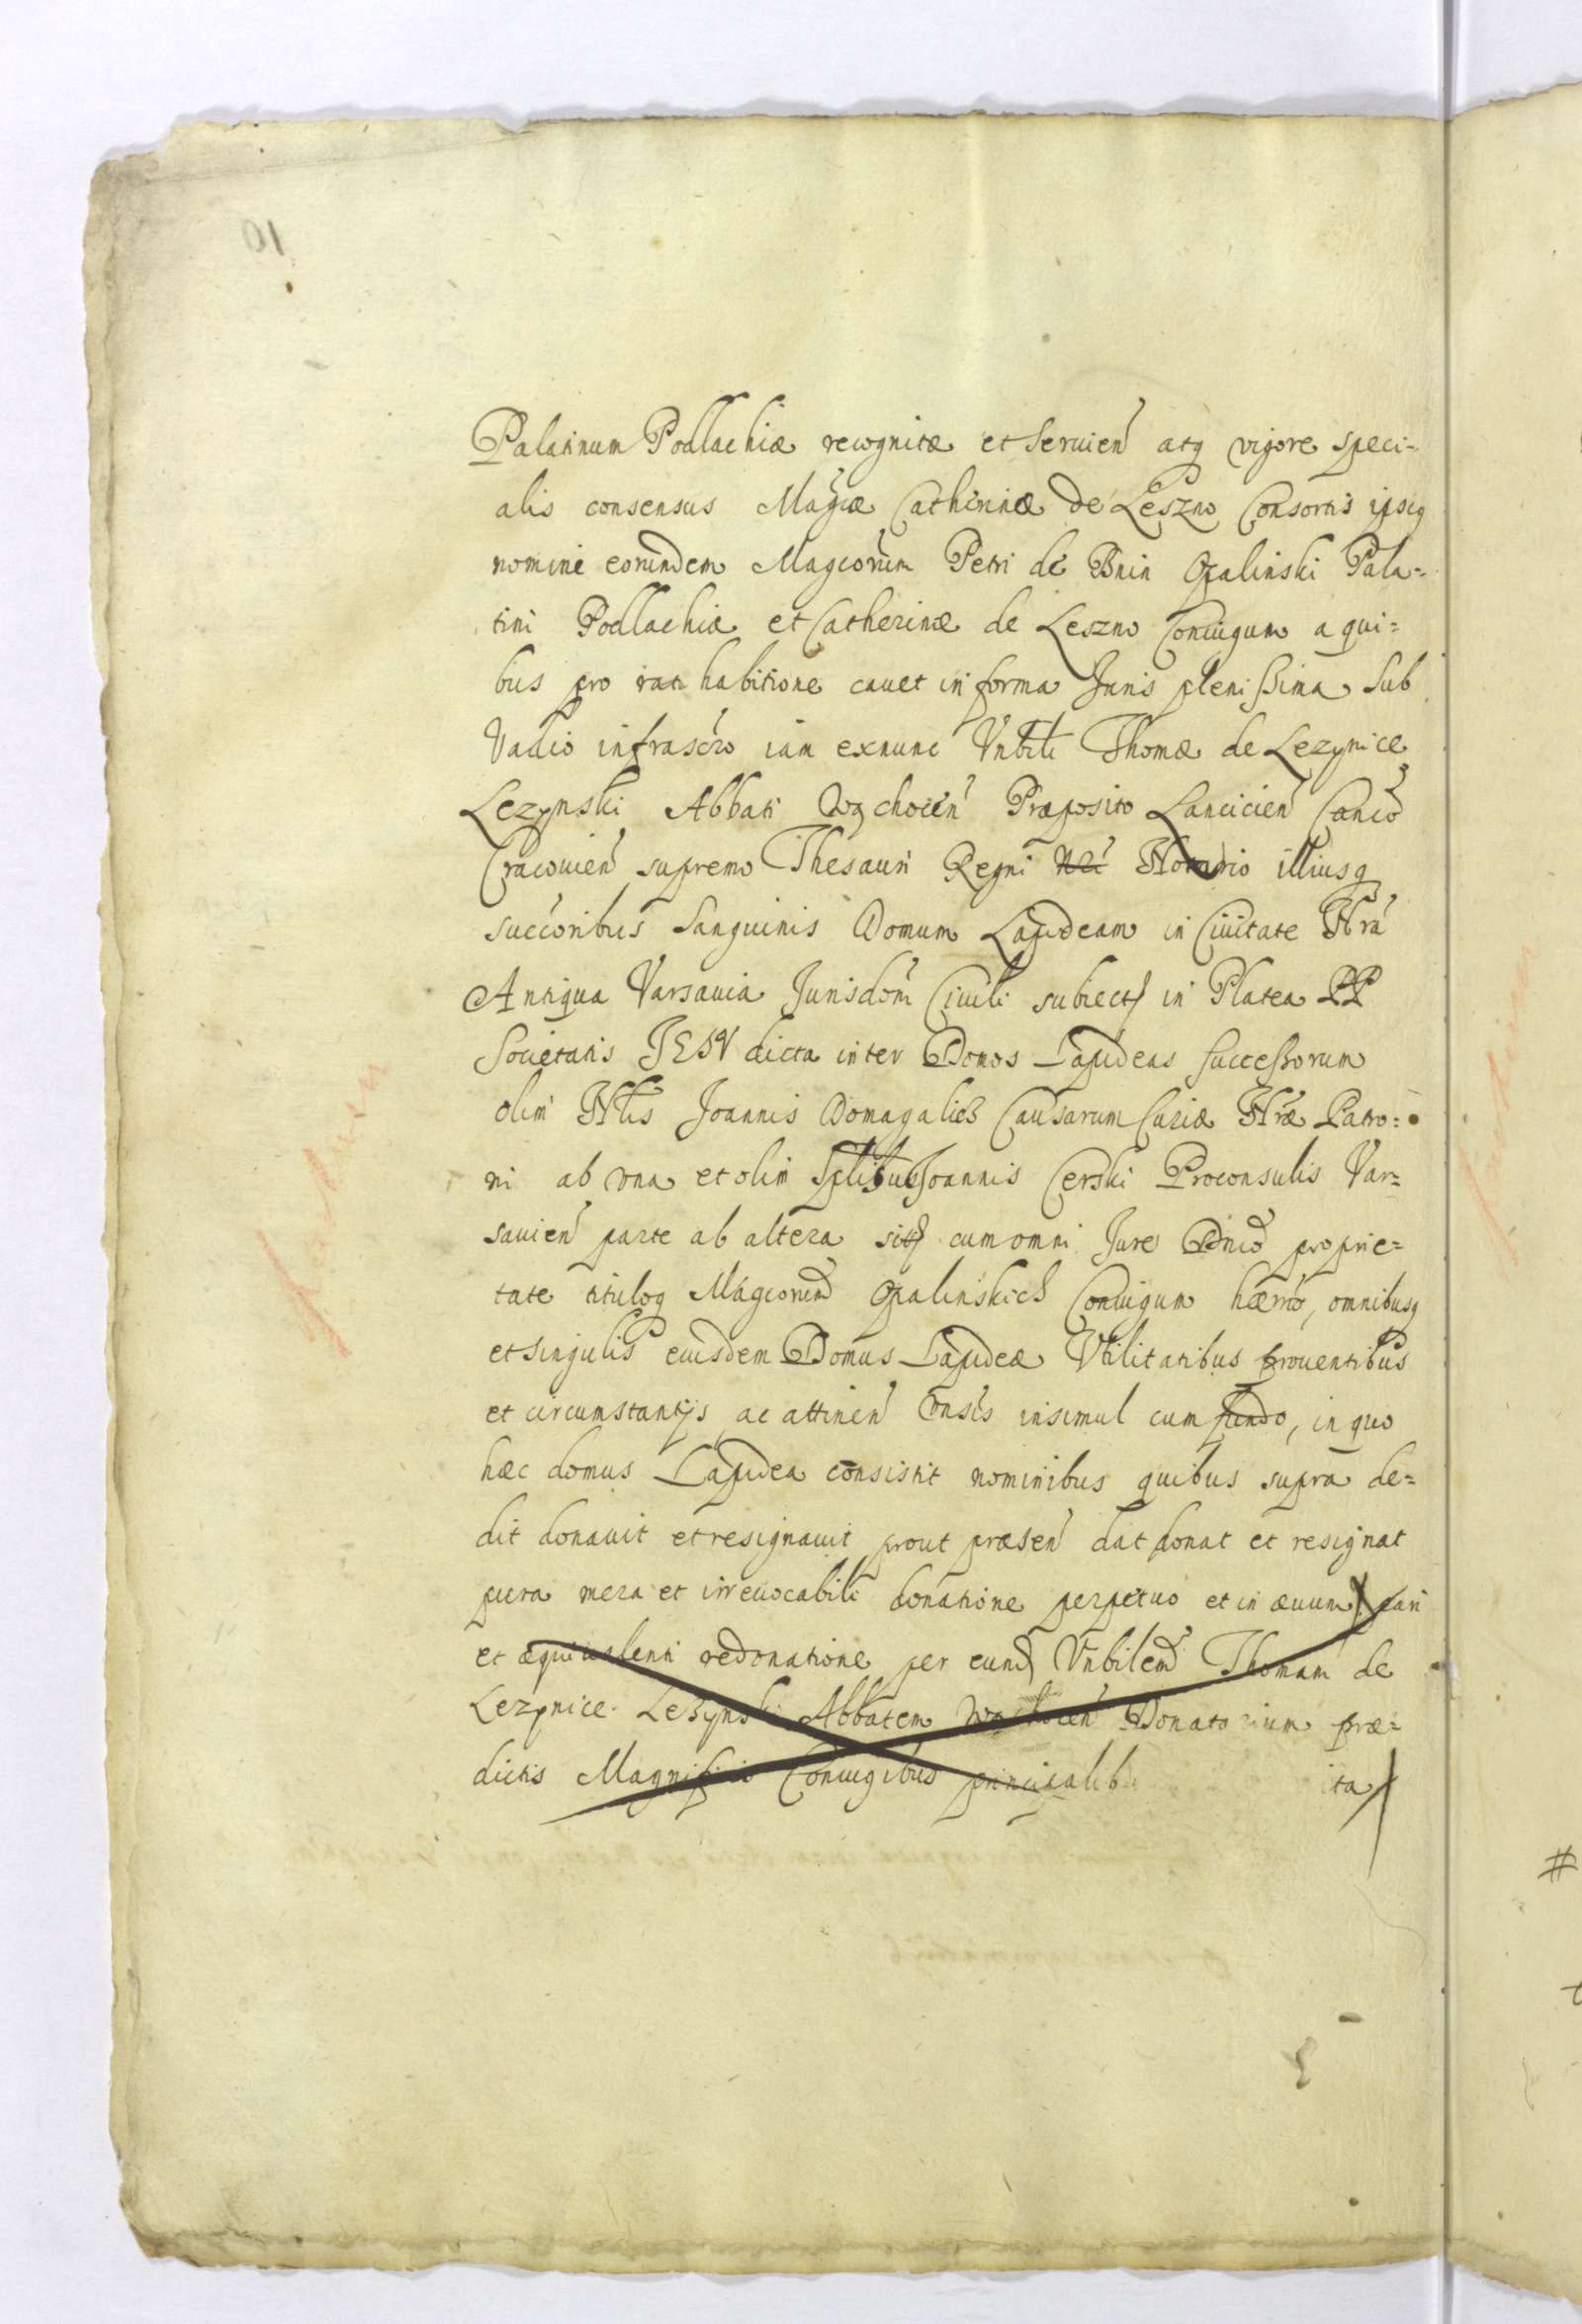 Palatinum Podlachiæ recognitæ et Seruien̄ atq vigore speci-
alis consensus Mag̃cæ Catherinæ de Leszno Consortis ipsiq
nomine eorundem Magcorum Petri de Bnin Opalinski Pala=
tini Podlachiæ et Catherinæ de Leszno Coniugum a qui=
bus pro rati habitione cauet in forma Juris plenissima Sub
Vadio infrascr̃o iam exnunc Vnbili Thomæ de Lezynice
Lezynski Abbati Wąchocen̄ Præposito Lancicien̄ Canco
Cracouien̄ supremo Thesauri Regni Nri Notario illiusq
succoribus Sanguinis Domum Lapideam in Ciuitate Nrã
Antiqua Varsauia Jurisdom̃ Ciuili subiect in Platea PP
Societatis JESV dicta inter Domos Lapideas successorum
olim Nlis Joannis Domagalich Causarum Curiæ Nræ Patro=
ni ab vna et olim Joannis Cerski Proconsulis Var=
sauien̄ parte ab altera sit cum omni Jure Dnio proprie=
tate tituloq Magcorum Opalinskich Coniugum hærrio, omnibusq
et singulis eiusdem Domus Lapideæ Vtilitatibus prouentibus
et circumstantijs ac attinen̄ vnsis insimul cum fundo, in quo
hæc domus Lapidea consistit nominibus quibus supra de=
dit donauit et resignauit prout præsen̄ dat donat et resignat
pura mera et irreuocabili donatione perpetuo et in æuum pari
et æquiualenti redonatione per eund Vnbilem Thomam de
Lezynice Lezynski Abbatem Wąchocen̄ Donatorium præ=
dictis Magnificis Coniugibus principalib ita
10